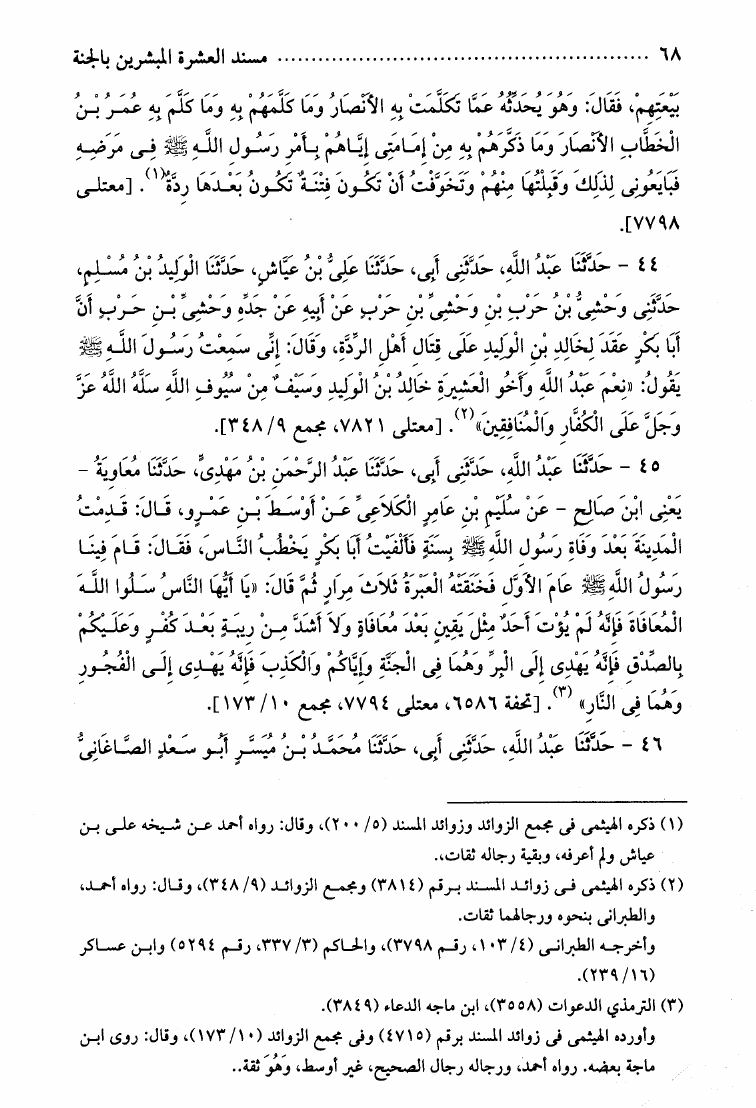 ٦٨ ........................................................ مسند العشرة المبشرين بالجنة
بَيْعَتِهِمْ، فَقَالَ: وَهُوَ يُحَدِّثُهُ عَمَّا تَكَلَّمَتْ بِهِ الأَنْصَارُ وَمَا كَلَّمَهُمْ بِهِ وَمَا كَلَّمَ بِهِ عُمَرُ بْنُ
الْخَطَّابِ الأَنْصَارَ وَمَا ذَكَّرَهُمْ بِهِ مِنْ إِمَامَتِى إِيَّاهُمْ بِأَمْرِ رَسُولِ اللَّهِ ﷺ فِى مَرَضِهِ
فَبَايَعُونِى لِذَلِكَ وَقَبِلْتُهَا مِنْهُمْ وَتَخَوَّفْتُ أَنْ تَكُونَ فِتْنَةٌ تَكُونُ بَعْدَهَا رِدَّةٌ(١). [معتلى
٧٧٩٨].
٤٤ - حَدَّثَنَا عَبْدُ اللَّهِ، حَدَّثَنِى أَبِى، حَدَّثَنَا عَلِىُّ بْنُ عَيَّاشٍ، حَدَّثَنَا الْوَلِيدُ بْنُ مُسْلِمٍ،
حَدَّثَنِى وَحْشِىُّ بْنُ حَرْبِ بْنِ وَحْشِىِّ بْنِ حَرْبٍ عَنْ أَبِيهِ عَنْ جَدِّهِ وَحْشِىِّ بْنِ حَرْبٍ أَنَّ
أَبَا بَكْرٍ عَقَدَ لِخَالِدِ بْنِ الْوَلِيدِ عَلَى قِتَالِ أَهْلِ الرِّدَّةِ، وَقَالَ: إِنِّى سَمِعْتُ رَسُولَ اللَّهِ ﷺ
يَقُولُ: «نِعْمَ عَبْدُ اللَّهِ وَأَخُو الْعَشِيرَةِ خَالِدُ بْنُ الْوَلِيدِ وَسَيْفٌ مِنْ سُيُوفِ اللَّهِ سَلَّهُ اللَّهُ عَزَّ
وَجَلَّ عَلَى الْكُفَّارِ وَالْمُنَافِقِينَ»(٢). [معتلى ٧٨٢١، مجمع ٩/ ٣٤٨].
٤٥ - حَدَّثَنَا عَبْدُ اللَّهِ، حَدَّثَنِى أَبِى، حَدَّثَنَا عَبْدُ الرَّحْمَنِ بْنُ مَهْدِىٍّ، حَدَّثَنَا مُعَاوِيَةُ -
يَعْنِى ابْنَ صَالِحٍ - عَنْ سُلَيْمِ بْنِ عَامِرٍ الْكَلاَعِىِّ عَنْ أَوْسَطَ بْنِ عَمْرٍو، قَالَ: قَدِمْتُ
الْمَدِينَةَ بَعْدَ وَفَاةِ رَسُولِ اللَّهِ ﷺ بِسَنَةٍ فَأَلْفَيْتُ أَبَا بَكْرٍ يَخْطُبُ النَّاسَ، فَقَالَ: قَامَ فِينَا
رَسُولُ اللَّهِ ﷺ عَامَ الأَوَّلِ فَخَنَقَتْهُ الْعَبْرَةُ ثَلاَثَ مِرَارٍ ثُمَّ قَالَ: «يَا أَيُّهَا النَّاسُ سَلُوا اللَّهَ
الْمُعَافَاةَ فَإِنَّهُ لَمْ يُؤْتَ أَحَدٌ مِثْلَ يَقِينٍ بَعْدَ مُعَافَاةٍ وَلاَ أَشَدَّ مِنْ رِيبَةٍ بَعْدَ كُفْرٍ وَعَلَيْكُمْ
بِالصِّدْقِ فَإِنَّهُ يَهْدِى إِلَى الْبِرِّ وَهُمَا فِى الْجَنَّةِ وَإِيَّاكُمْ وَالْكَذِبَ فَإِنَّهُ يَهْدِى إِلَى الْفُجُورِ
وَهُمَا فِى النَّارِ»(٣). [تحفة ٦٥٨٦، معتلى ٧٧٩٤، مجمع ١٠/ ١٧٣].
٤٦ - حَدَّثَنَا عَبْدُ اللَّهِ، حَدَّثَنِى أَبِى، حَدَّثَنَا مُحَمَّدُ بْنُ مُيَسَّرٍ أَبُو سَعْدٍ الصَّاغَانِىُّ
(١) ذكره الهيثمى فى مجمع الزوائد وزوائد المسند (٥/ ٢٠٠)، وقال: رواه أحمد عن شيخه على بن
عياش ولم أعرفه، وبقية رجاله ثقات،.
(٢) ذكره الهيثمى فى زوائد المسند برقم (٣٨١٤) ومجمع الزوائد (٩/ ٣٤٨)، وقال: رواه أحمد،
والطبرانى بنحوه ورجالهما ثقات.
وأخرجه الطبرانى (٤/ ١٠٣، رقم ٣٧٩٨)، والحاكم (٣/ ٣٣٧، رقم ٥٢٩٤) وابن عساكر
(١٦/ ٢٣٩).
(٣) الترمذي الدعوات (٣٥٥٨)، ابن ماجه الدعاء (٣٨٤٩).
وأورده الهيثمى فى زوائد المسند برقم (٤٧١٥) وفى مجمع الزوائد (١٠/ ١٧٣)، وقال: روى ابن
ماجة بعضه. رواه أحمد، ورجاله رجال الصحيح، غير أوسط، وَهُوَ ثقة..